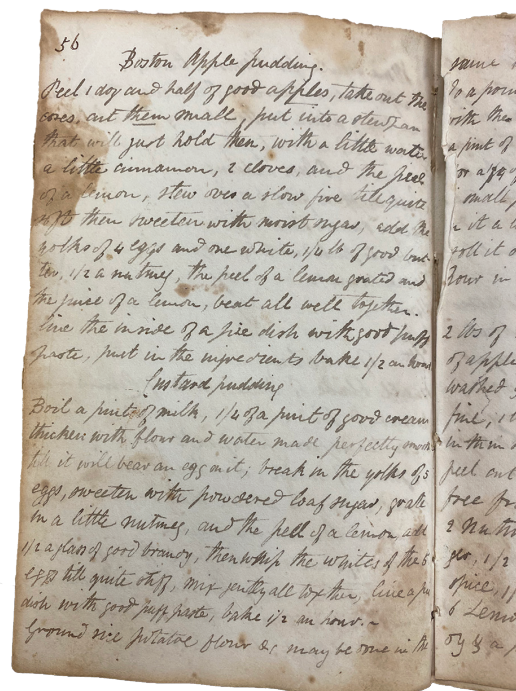 56
Boston Apple pudding.
Peel 1 doz and half of good apples, take out the
cores, cut them small, put into a stewpan
that will just hold them, with a little water
a little cinnamon, 2 cloves, and the peel
of a lemon, stew over a slow fire till quite
soft then sweeten with moist sugar, add the
yolks of 4 eggs and one white, 1/4 lb of good but
ter, 1/2 a nutmeg, the peel of a lemon grated and
the juice of a lemon, beat all well together.
line the inside of a pie dish with good puff
paste, put in the ingredients bake 1/2 an hour
Custard pudding
Boil a pint of milk, 1/4 of a pint of good cream
thicken with flour and water made perfectly smooth
till it will bear an egg on it; break in the yolks of 5
eggs, sweeten with powdered loaf sugar, grate
in a little nutmeg, and the peel of a lemon add
1/2 a glass of good brandy, then whip the whites of the 5
eggs till quite stiff, mix gently all together, line a pie
dish with good puff paste, bake 1/2 an hour. -
Ground rice potatoe flour &c may be done in the
same
to a poun
with the
a pint of
or
small,
it a
roll it o
hour in
2 lbs of
of apple
washed
fine, 1
in them
peel cut
free fr
2 nutm
ger, 1/2
spice, 1/
6 Lemo
of 3 a